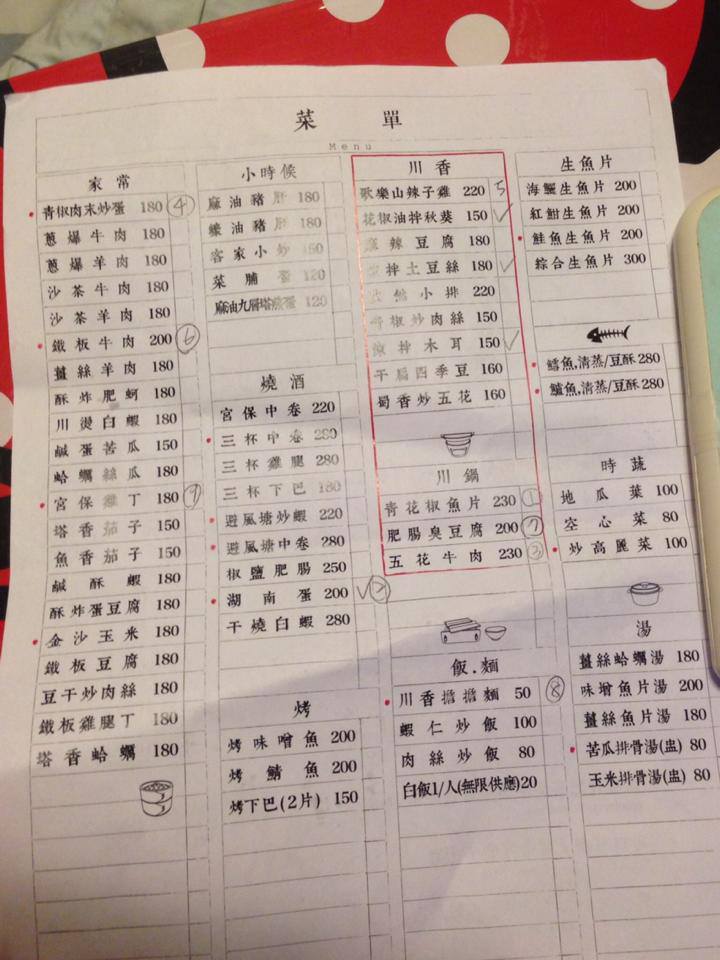 菜 單
Menu
家常
青椒肉末炒蛋 180 ④
蔥爆牛肉 180
蔥爆羊肉 180
沙茶牛肉 180
沙茶羊肉 180
鐵板牛肉 200 ⑥
薑絲羊肉 180
酥炸肥蚵 180
川燙白蝦 180
鹹蛋苦瓜 150
蛤蠣絲瓜 180
宮保雞丁 180
塔香茄子 150
魚香茄子 150
鹹酥蝦 180
酥炸蛋豆腐 180
金沙玉米 180
鐵板豆腐 180
豆干炒肉絲 180
鐵板雞腿丁 180
塔香蛤蠣 180
小時候
麻油豬肝 180
蠔油豬肝 180
客家小炒 150
菜脯蛋 120
麻油九層塔煎蛋 120
燒酒
宮保中卷 220
三杯中卷 280
三杯雞腿 280
三杯下巴 180
避風塘炒蝦 220
避風塘中卷 280
椒鹽肥腸 250
湖南蛋 200 ✓
干燒白蝦 280
烤
烤味噌魚 200
烤鯖魚 200
烤下巴(2片) 150
川香
歌樂山辣子雞 220 5
花椒油拌秋葵 150 ✓
麻辣豆腐 180
涼拌土豆絲 180 ✓
小排 220
青椒炒肉絲 150
涼拌木耳 150 ✓
干扁四季豆 160
蜀香炒五花 160
川鍋
青花椒魚片 230 ①
肥腸臭豆腐 200
五花牛肉 230 ③
飯.麵
川香擔擔麵 50 ⑧
蝦仁炒飯 100
肉絲炒飯 80
白飯1/人(無限供應)20
生魚片
海鱺生魚片 200
紅魽生魚片 200
鮭魚生魚片 200
綜合生魚片 300
鱈魚,清蒸/豆酥 280
鱸魚,清蒸/豆酥 280
時蔬
地瓜葉 100
空心菜 80
炒高麗菜 100
湯
薑絲蛤蠣湯 180
味增魚片湯 200
薑絲魚片湯 180
苦瓜排骨湯(盅) 80
玉米排骨湯(盅) 80